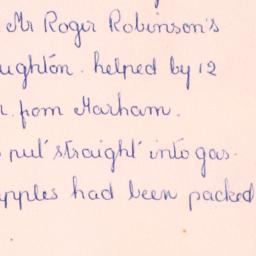 Mr Roger Robinson's
ughton. helped by 12
from Marham.
put straight into gas.
apples had been packed